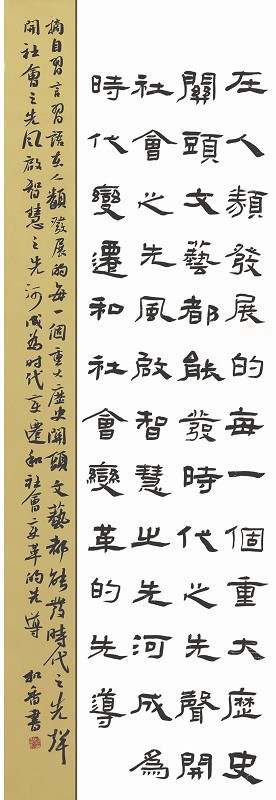 在人類發展的每一個重大歷史
關頭文藝都能發時代之先聲開
社會之先風啟智慧之先河成為
時代變遷和社會變革的先導
摘自習言習語在人類發展的每一個重大歷史關頭文藝都能發時代之先聲
開社會之先風啟智慧之先河成為时代變遷和社會變革的先導
書